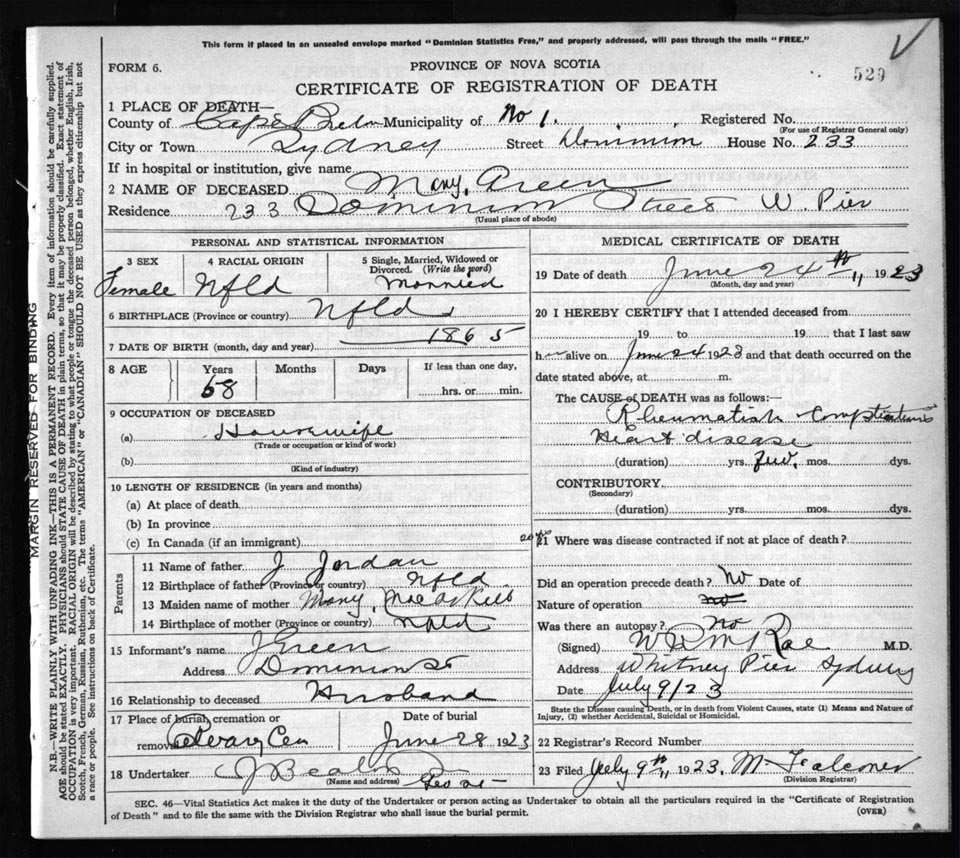 This form if placed in an unsealed envelope marked "Dominion Statistics Free," and properly addressed, will pass through the mails "FREE."
FORM 6.
PROVINCE OF NOVA SCOTIA
529
CERTIFICATE OF REGISTRATION OF DEATH
1 PLACE OF DEATH—
County of Cape Breton Municipality of No 1. Registered No.
(For use of Registrar General only)
City or Town Sydney Street Dominion House No. 233
If in hospital or institution, give name
2 NAME OF DECEASED Mary Green
Residence 233 Dominion Street W. Pier
(Usual place of abode)
PERSONAL AND STATISTICAL INFORMATION
3 SEX 4 RACIAL ORIGIN 5 Single, Married, Widowed or Divorced. (Write the word)
Female Nfld Married
6 BIRTHPLACE (Province or country) Nfld
7 DATE OF BIRTH (month, day and year) 1865
8 AGE Years Months Days If less than one day,
58 hrs. or min.
9 OCCUPATION OF DECEASED
(a) Housewife
(Trade or occupation or kind of work)
(b)
(Kind of industry)
10 LENGTH OF RESIDENCE (in years and months)
(a) At place of death
(b) In province
(c) In Canada (if an immigrant)
Parents
11 Name of father J Jordan
12 Birthplace of father (Province or country) Nfld
13 Maiden name of mother Mary
14 Birthplace of mother (Province or country) Nfld
15 Informant's name J Green
Address Dominion St
16 Relationship to deceased Husband
17 Place of burial, cremation or removal Date of burial
Cem June 28 1923
18 Undertaker
(Name and address)
MEDICAL CERTIFICATE OF DEATH
19 Date of death June 24th 1923
(Month, day and year)
20 I HEREBY CERTIFY that I attended deceased from
19 to 19 that I last saw
h alive on June 24 1923 and that death occurred on the
date stated above, at m.
The CAUSE of DEATH was as follows:—
Rheumatism
Heart disease
(duration) yrs. few. mos. dys.
CONTRIBUTORY
(Secondary)
(duration) yrs. mos. dys.
21 Where was disease contracted if not at place of death?
Did an operation precede death? No Date of
Nature of operation no
Was there an autopsy? No
(Signed) W R McRae M.D.
Address Whitney Pier Sydney
Date July 9/23
State the Disease causing Death, or in death from Violent Causes, state (1) Means and Nature of Injury, (2) whether Accidental, Suicidal or Homicidal.
22 Registrar's Record Number
23 Filed July 9th 1923. M Falconer
(Division Registrar)
SEC. 46—Vital Statistics Act makes it the duty of the Undertaker or person acting as Undertaker to obtain all the particulars required in the "Certificate of Registration
of Death" and to file the same with the Division Registrar who shall issue the burial permit. (OVER)
MARGIN RESERVED FOR BINDING
N.B.—WRITE PLAINLY WITH UNFADING INK—THIS IS A PERMANENT RECORD. Every item of information should be carefully supplied.
AGE should be stated EXACTLY. PHYSICIANS should STATE CAUSE OF DEATH in plain terms, so that it may be properly classified. Exact statement of
OCCUPATION is very important. RACIAL ORIGIN will be described by stating to what people or tongue the deceased person belonged, whether English, Irish,
Scotch, French, German, Russian, Ruthenian, etc. The terms "AMERICAN" or "CANADIAN" SHOULD NOT BE USED as they express citizenship but not
a race or people. See instructions on back of Certificate.